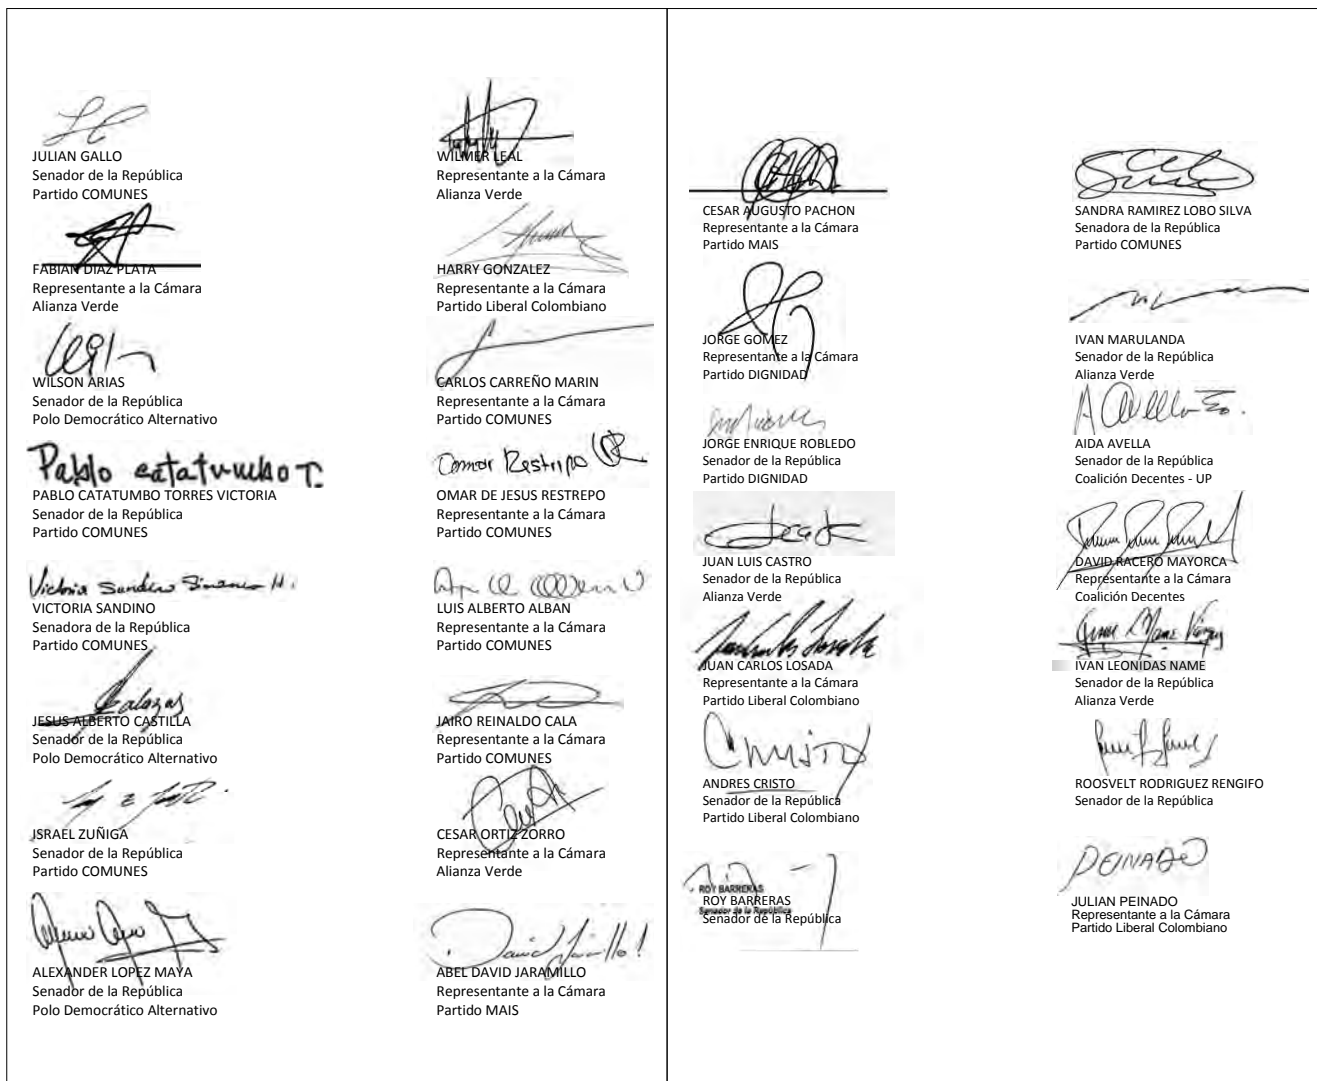 JULIAN GALLO
Senador de la República
Partido COMUNES
FABIAN DIAZ PLATA
Representante a la Cámara
Alianza Verde
WILSON ARIAS
Senador de la República
Polo Democrático Alternativo
Pablo catatumbo T.
PABLO CATATUMBO TORRES VICTORIA
Senador de la República
Partido COMUNES
Victoria Sandino Simanca H.
VICTORIA SANDINO
Senadora de la República
Partido COMUNES
JESUS ALBERTO CASTILLA
Senador de la República
Polo Democrático Alternativo
ISRAEL ZUÑIGA
Senador de la República
Partido COMUNES
ALEXANDER LOPEZ MAYA
Senador de la República
Polo Democrático Alternativo
WILMER LEAL
Representante a la Cámara
Alianza Verde
HARRY GONZALEZ
Representante a la Cámara
Partido Liberal Colombiano
CARLOS CARREÑO MARIN
Representante a la Cámara
Partido COMUNES
Omar Restrepo
OMAR DE JESUS RESTREPO
Representante a la Cámara
Partido COMUNES
LUIS ALBERTO ALBAN
Representante a la Cámara
Partido COMUNES
JAIRO REINALDO CALA
Representante a la Cámara
Partido COMUNES
CESAR ORTIZ ZORRO
Representante a la Cámara
Alianza Verde
David Jaramillo!
ABEL DAVID JARAMILLO
Representante a la Cámara
Partido MAIS
CESAR AUGUSTO PACHON
Representante a la Cámara
Partido MAIS
JORGE GOMEZ
Representante a la Cámara
Partido DIGNIDAD
JORGE ENRIQUE ROBLEDO
Senador de la República
Partido DIGNIDAD
JUAN LUIS CASTRO
Senador de la República
Alianza Verde
Juan Carlos Losada
JUAN CARLOS LOSADA
Representante a la Cámara
Partido Liberal Colombiano
ANDRES CRISTO
Senador de la República
Partido Liberal Colombiano
ROY BARRERAS
ROY BARRERAS
Senador de la República
Senador de la República
SANDRA RAMIREZ LOBO SILVA
Senadora de la República
Partido COMUNES
IVAN MARULANDA
Senador de la República
Alianza Verde
AIDA AVELLA
Senador de la República
Coalición Decentes - UP
DAVID RACERO MAYORCA
Representante a la Cámara
Coalición Decentes
IVAN LEONIDAS NAME
Senador de la República
Alianza Verde
ROOSVELT RODRIGUEZ RENGIFO
Senador de la República
PEINADO
JULIAN PEINADO
Representante a la Cámara
Partido Liberal Colombiano